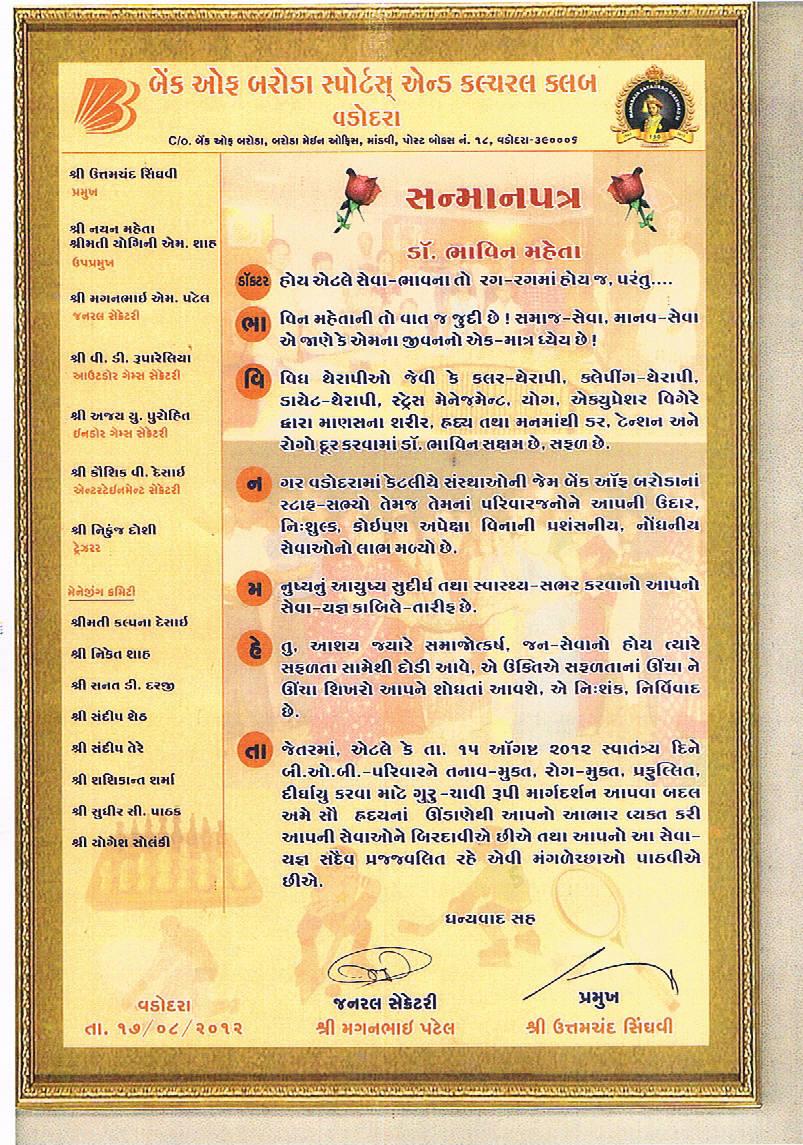 બેંક ઓફ બરોડા સ્પોર્ટસ્ એન્ડ કલ્ચરલ કલબ
વડોદરા
C/o. બેંક ઓફ બરોડા, બરોડા મેઈન ઓફિસ, માંડવી, પોસ્ટ બોક્સ નં. ૧૮, વડોદરા-૩૯૦૦૦૬
શ્રી ઉત્તમચંદ સિંઘવી
પ્રમુખ
શ્રી નયન મહેતા
શ્રીમતી યોગિની એમ. શાહ
ઉપપ્રમુખ
શ્રી મગનભાઇ એમ. પટેલ
જનરલ સેક્રેટરી
શ્રી વી. ડી. રૂપારેલિયા
આઉટડોર ગેમ્સ સેક્રેટરી
શ્રી અજય યુ. પુરોહિત
ઈનડોર ગેમ્સ સેક્રેટરી
શ્રી કૌશિક વી. દેસાઇ
એન્ટરટેઇનમેન્ટ સેક્રેટરી
શ્રી નિકુંજ દોશી
ટ્રેઝરર
મેનેજીંગ કમિટી
શ્રીમતી કલ્પના દેસાઇ
શ્રી નિકેત શાહ
શ્રી સનત ડી. દરજી
શ્રી સંદીપ શેઠ
શ્રી સંદીપ તેરે
શ્રી શશિકાન્ત શર્મા
શ્રી સુધીર સી. પાઠક
શ્રી યોગેશ સોલંકી
સન્માનપત્ર
ડૉ. ભાવિન મહેતા
ડૉક્ટર હોય એટલે સેવા-ભાવના તો રગ-રગમાં હોય જ, પરંતુ....
ભા વિન મહેતાની તો વાત જ જુદી છે ! સમાજ-સેવા, માનવ-સેવા
એ જાણે કે એમના જીવનનો એક-માત્ર ધ્યેય છે !
વિ વિધ થેરાપીઓ જેવી કે કલર-થેરાપી, ક્લેપીંગ-થેરાપી,
ડાયેટ-થેરાપી, સ્ટ્રેસ મેનેજમેન્ટ, યોગ, એક્યુપ્રેશર વિગેરે
દ્વારા માણસના શરીર, હ્રદય તથા મનમાંથી ડર, ટેન્શન અને
રોગો દૂર કરવામાં ડૉ. ભાવિન સક્ષમ છે, સફળ છે.
ન ગર વડોદરામાં કેટલીયે સંસ્થાઓની જેમ બેંક ઑફ બરોડાનાં
સ્ટાફ-સભ્યો તેમજ તેમનાં પરિવારજનોને આપની ઉદાર,
નિઃશુલ્ક, કોઇપણ અપેક્ષા વિનાની પ્રશંસનીય, નોંધનીય
સેવાઓનો લાભ મળ્યો છે.
મ નુષ્યનું આયુષ્ય સુદીર્ઘ તથા સ્વાસ્થ્ય-સભર કરવાનો આપનો
સેવા-યજ્ઞ કાબિલે-તારીફ છે.
હે તુ, આશય જ્યારે સમાજોત્કર્ષ, જન-સેવાનો હોય ત્યારે
સફળતા સામેથી દોડી આવે, એ ઉક્તિએ સફળતાનાં ઊંચા ને
ઊંચા શિખરો આપને શોધતાં આવશે, એ નિઃશંક, નિર્વિવાદ
છે.
તા જેતરમાં, એટલે કે તા. ૧૫ ઑગષ્ટ ૨૦૧૨ સ્વાતંત્ર્ય દિને
બી.ઓ.બી.-પરિવારને તનાવ-મુક્ત, રોગ-મુક્ત, પ્રફુલ્લિત,
દીર્ઘાયુ કરવા માટે ગુરુ-ચાવી રૂપી માર્ગદર્શન આપવા બદલ
અમે સૌ હ્રદયનાં ઊંડાણેથી આપનો આભાર વ્યક્ત કરી
આપની સેવાઓને બિરદાવીએ છીએ તથા આપનો આ સેવા-
યજ્ઞ સદૈવ પ્રજજવલિત રહે એવી મંગળેચ્છાઓ પાઠવીએ
છીએ.
ધન્યવાદ સહ
વડોદરા
તા. ૧૭/૦૮/૨૦૧૨
જનરલ સેક્રેટરી
શ્રી મગનભાઇ પટેલ
પ્રમુખ
શ્રી ઉત્તમચંદ સિંઘવી